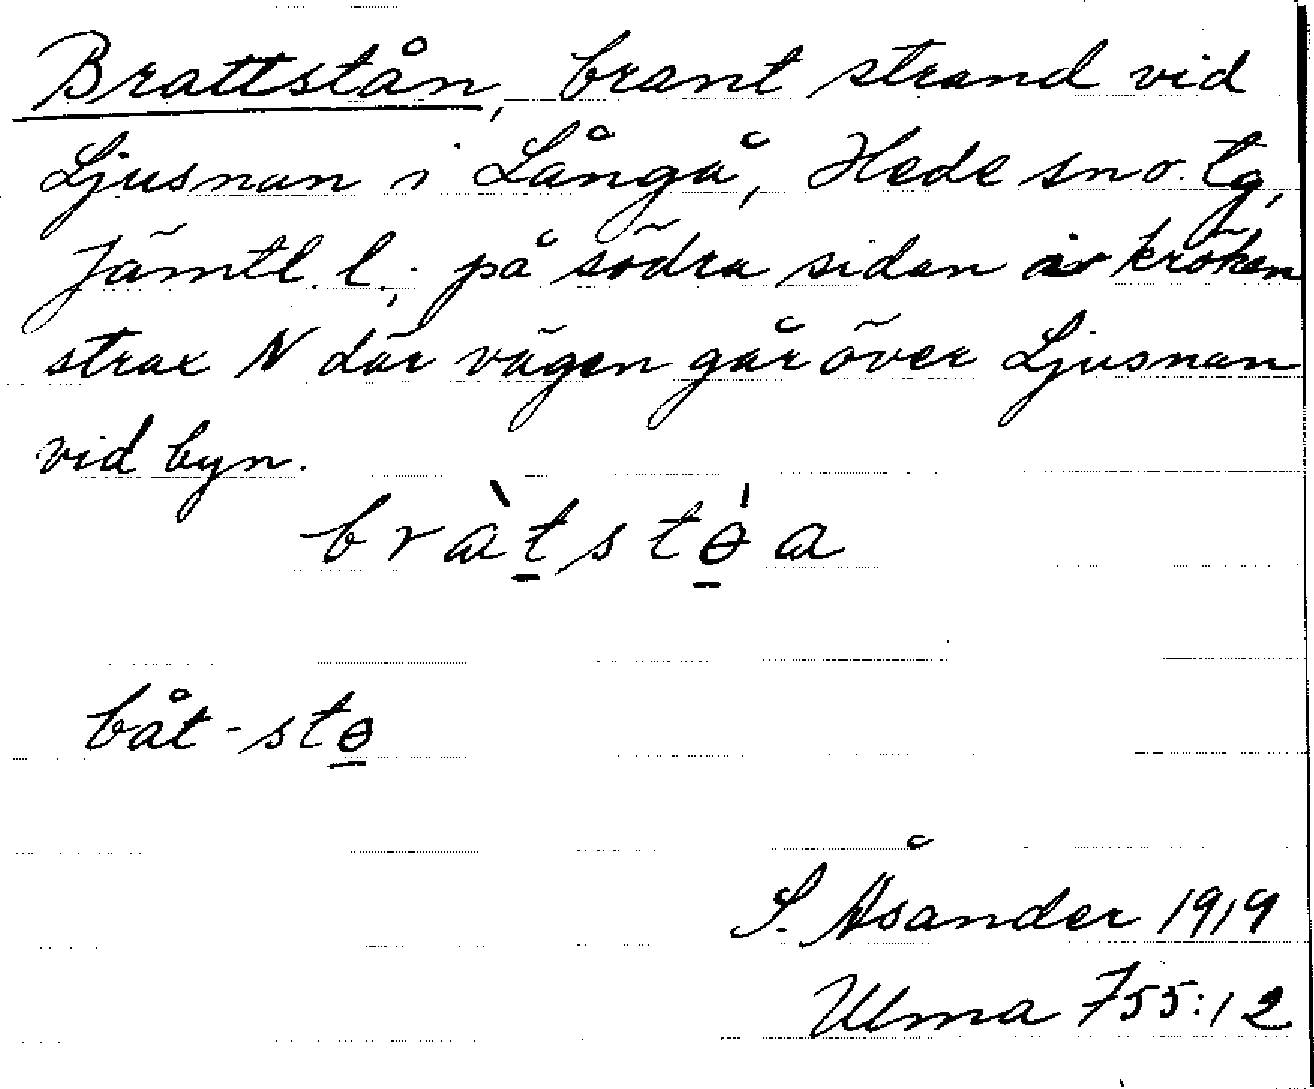 Brattstån, brant strand vid
Ljusnan i Långå, Hede sn o. tg,
Jämtl. l.; på södra sidan av kröken
strax N där vägen går över Ljusnan
vid byn.
bràt̲stɵ̲́a
båt-stɵ̲
S. Åsander 1919
Ulma 755:12